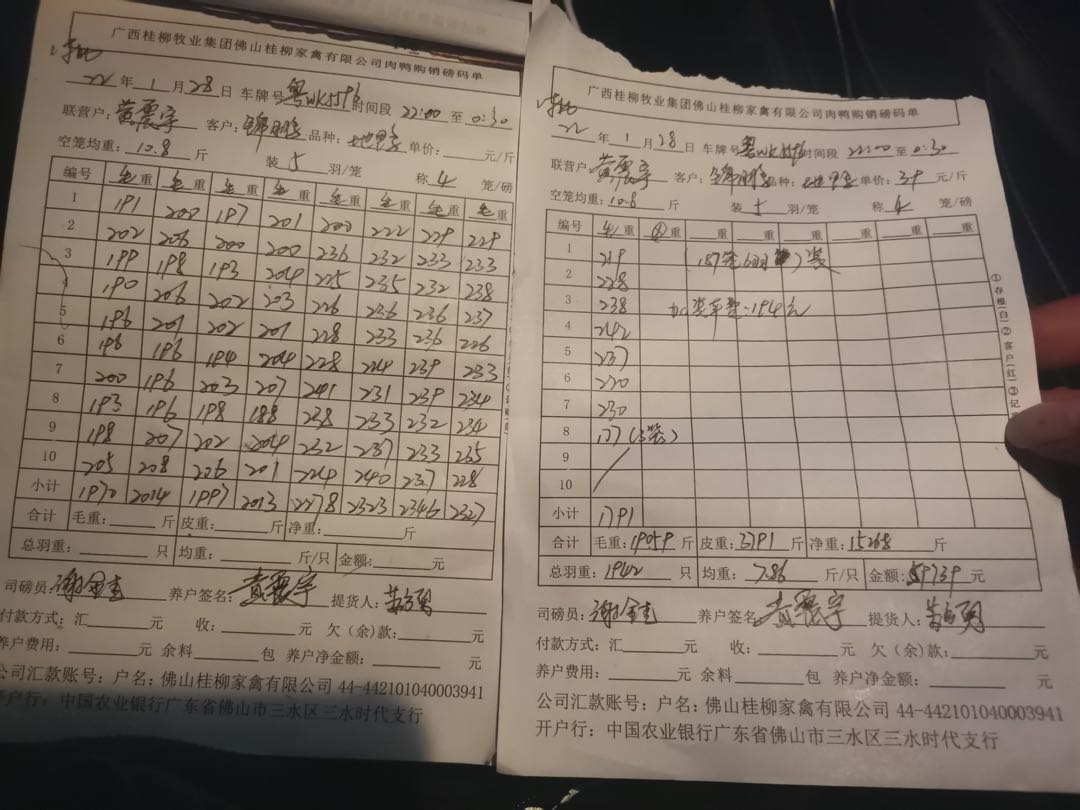 广西桂柳牧业集团佛山桂柳家禽有限公司肉鸭购销磅码单
22年1月28日 车牌号 时间段22:00至0:30
联营户：黄震宇 客户：锦鹏 品种： 单价： 元/斤
空笼均重：10.8斤 装5羽/笼 称4笼/磅
编号 毛重 毛重 毛重 毛重 毛重 毛重 毛重 毛重
1 191 200 197 201 200 222 229 229
2 202 206 200 200 236 232 233 233
3 199 198 193 204 225 235 232 238
4 190 206 202 203 226 236 236 237
5 196 201 202 201 228 233 236 226
6 196 196 194 204 228 224 239 233
7 200 196 203 207 241 231 239 234
8 193 196 198 188 238 233 232 234
9 198 207 202 204 232 237 233 235
10 205 208 206 201 224 240 237 228
小计 1970 2014 1997 2013 2278 2323 2346 2327
合计 毛重： 斤 皮重： 斤 净重： 斤
总羽重： 只 均重： 斤/只 金额： 元
司磅员：谢金 养户签名：黄震宇 提货人：
付款方式：汇 元 收： 元 欠（余）款： 元
养户费用： 元 余料 包 养户净金额： 元
公司汇款账号：户名：佛山桂柳家禽有限公司 44-442101040003941
开户行：中国农业银行广东省佛山市三水区三水时代支行
广西桂柳牧业集团佛山桂柳家禽有限公司肉鸭购销磅码单
22年1月28日 车牌号 时间段22:00至0:30
联营户：黄震宇 客户：锦鹏 品种： 单价： 元/斤
空笼均重：10.8斤 装5羽/笼 称4笼/磅
编号 毛重 重 重 重 重 重 重
1 219
2 228
3 238 加装车费：194元
4 242
5 237
6 220
7 230
8 177（3笼）
9
10
小计 1791
合计 毛重：19059斤 皮重：3791斤 净重：15268斤
总羽重：1942只 均重：7.86斤/只 金额：59739元
司磅员：谢金 养户签名：黄震宇 提货人：
付款方式：汇 元 收： 元 欠（余）款： 元
养户费用： 元 余料 包 养户净金额： 元
公司汇款账号：户名：佛山桂柳家禽有限公司 44-442101040003941
开户行：中国农业银行广东省佛山市三水区三水时代支行
①存根(白)②客户(红)③记